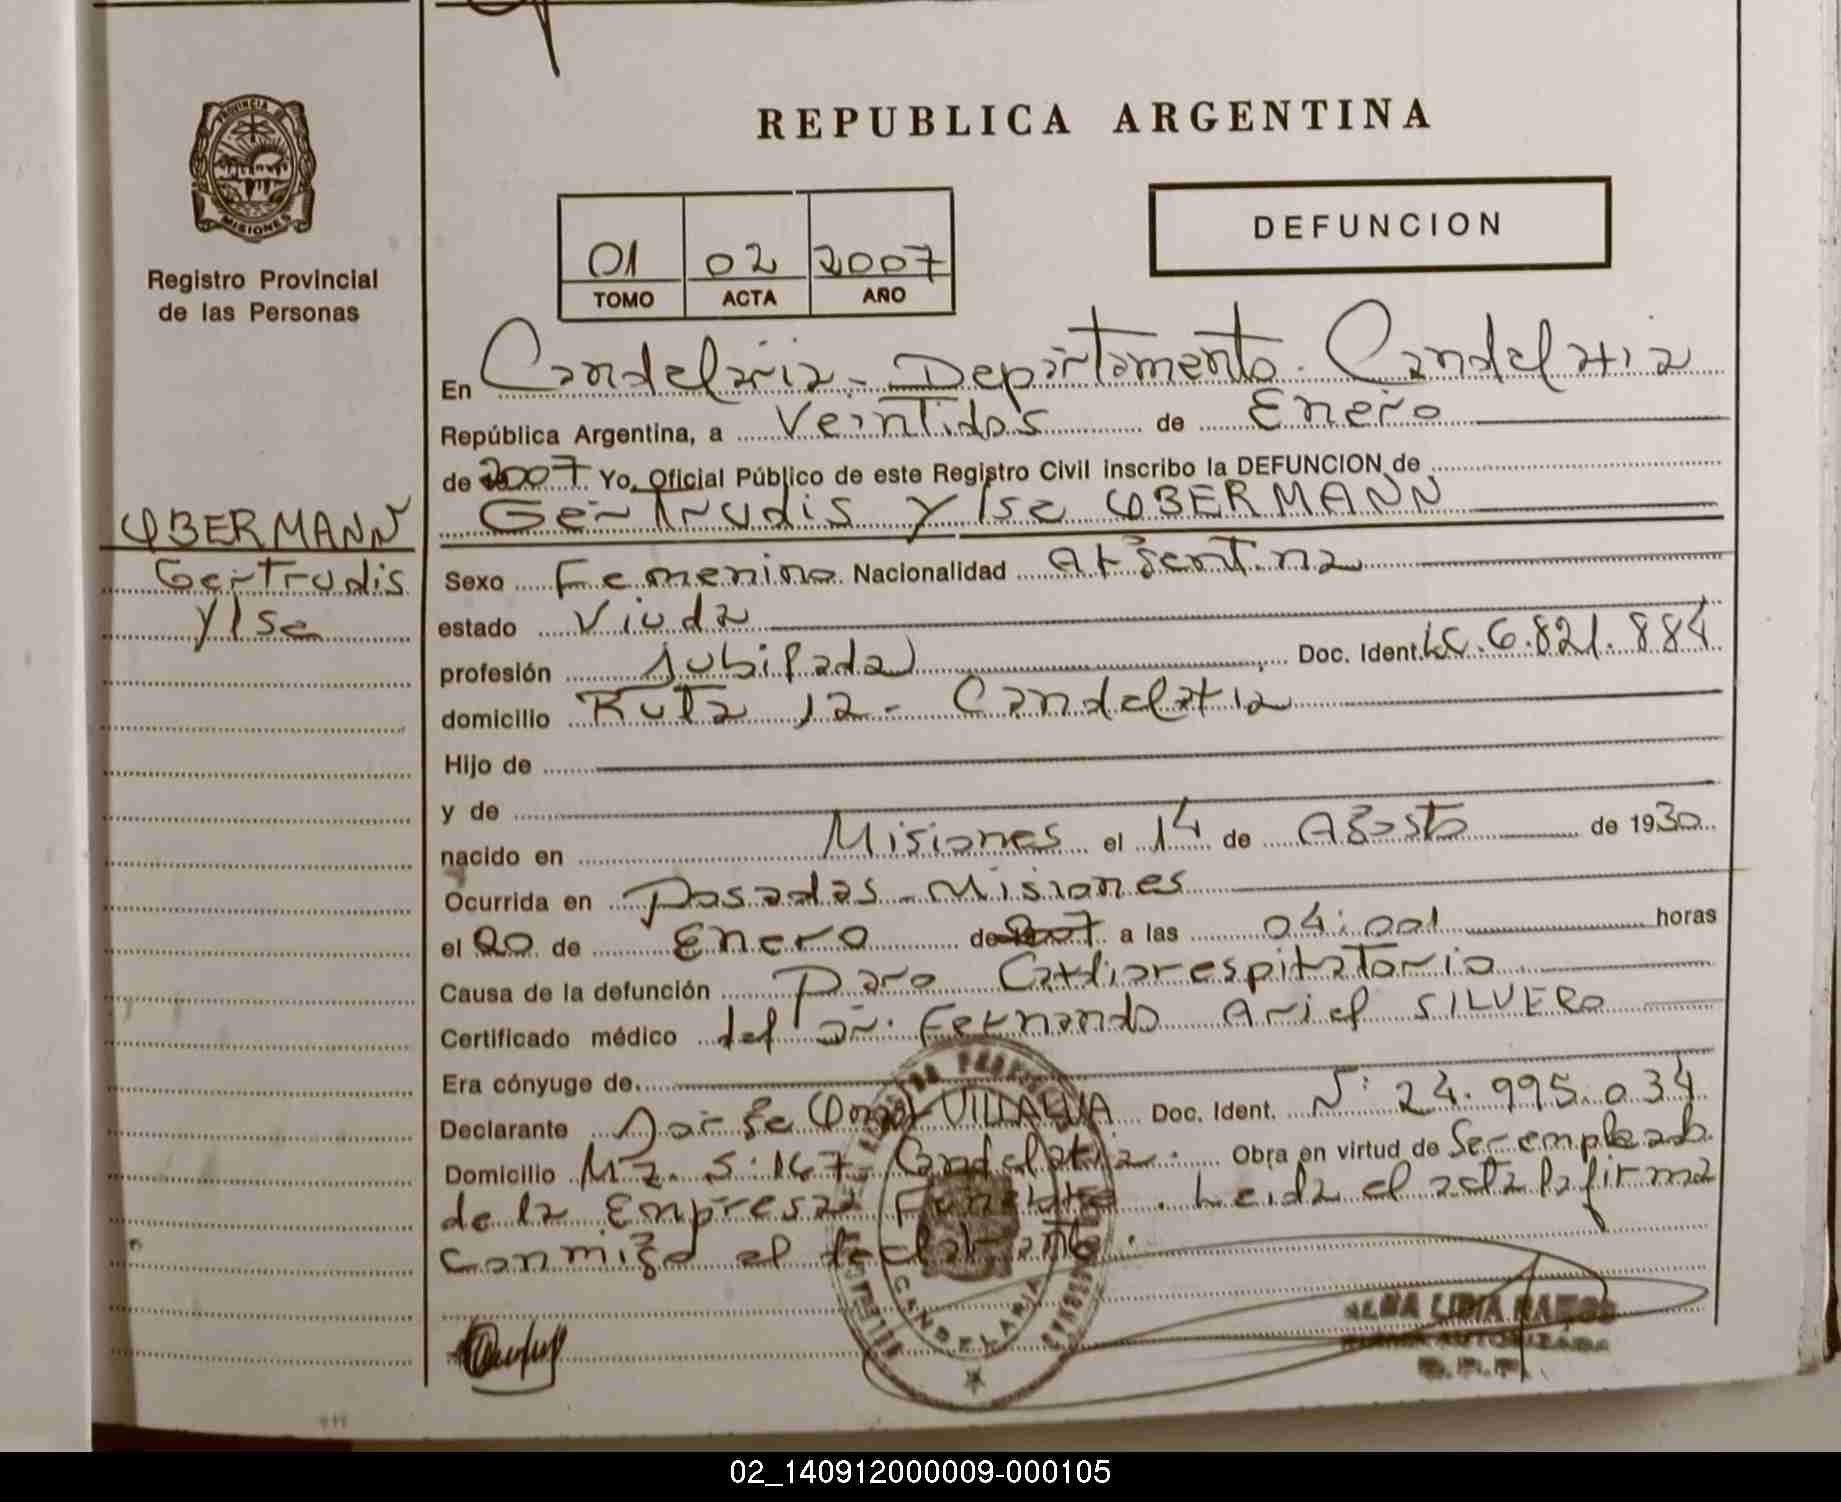 REPUBLICA ARGENTINA
PROVINCIA DE MISIONES
Registro Provincial
de las Personas
01 02 2007
TOMO ACTA AÑO
DEFUNCION
En Candelaria - Departamento Candelaria
República Argentina, a Veintidos de Enero
de 2007 Yo, Oficial Público de este Registro Civil inscribo la DEFUNCION de
Gertrudis Ylse OBERMANN
OBERMANN
Gertrudis
Ylse
Sexo Femenino Nacionalidad Argentina
estado Viuda
profesión Jubilada Doc. Ident. LC. 6.821.884
domicilio Ruta 12 - Candelaria
Hijo de
y de
nacido en Misiones el 14 de Agosto de 1930
Ocurrida en Posadas - Misiones
el 20 de Enero de 2007 a las 04:00 horas
Causa de la defunción Paro Cardiorespiratorio
Certificado médico del Dr. Fernando Ariel SILVERO
Era cónyuge de
Declarante Jorge Omar VILLALVA Doc. Ident. N° 24.995.034
Domicilio Mz. 5: 167 - Candelaria. Obra en virtud de Ser empleado
de la Empresa Funebre. Leida el acta la firma
conmigo el declarante.
CANDELARIA
ALBA LIDIA RAMOS
FIRMA AUTORIZADA
R.P.P.
02_140912000009-000105